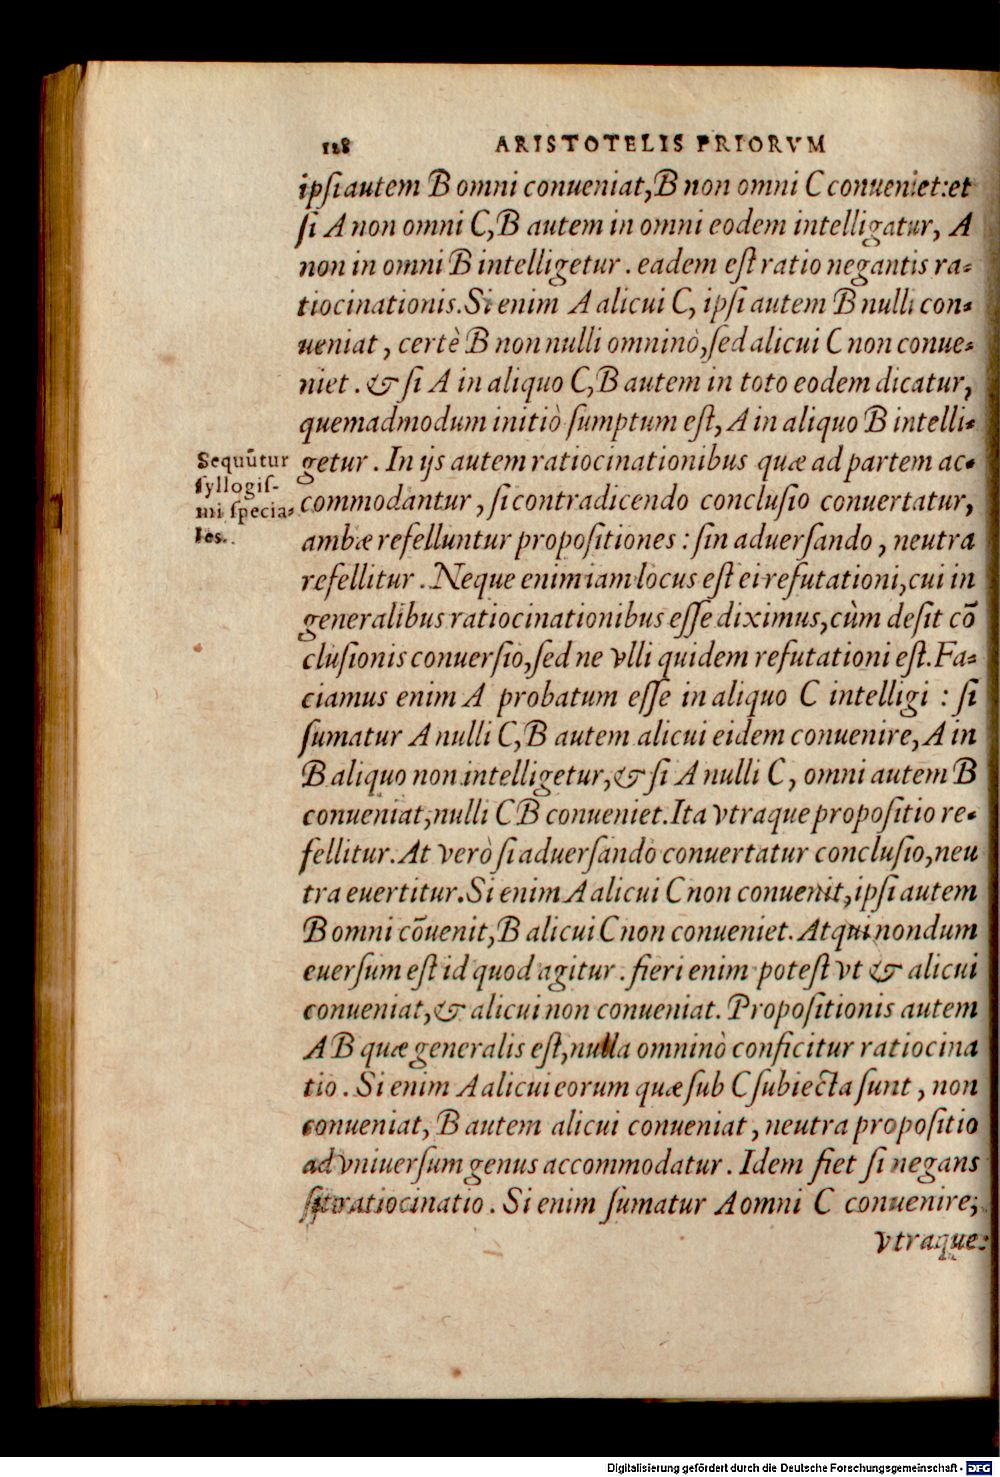 128 ARISTOTELIS PRIORVM
ipſi autem B omni conueniat, B non omni C conueniet: et
ſi A non omni C, B autem in omni eodem intelligatur, A
non in omni B intelligetur. eadem eſt ratio negantis ra-
tiocinationis. Si enim A alicui C, ipſi autem B nulli con-
ueniat, certè B non nulli omninò, ſed alicui C non conue-
niet. & ſi A in aliquo C, B autem in toto eodem dicatur,
quemadmodum initiò ſumptum eſt, A in aliquo B intelli-
getur. In ijs autem ratiocinationibus quæ ad partem ac-
commodantur, ſi contradicendo concluſio conuertatur,
ambæ refelluntur propoſitiones: ſin aduerſando, neutra
refellitur. Neque enim iam locus eſt ei refutationi, cui in
generalibus ratiocinationibus eſſe diximus, cùm deſit cō
cluſionis conuerſio, ſed ne vlli quidem refutationi eſt. Fa-
ciamus enim A probatum eſſe in aliquo C intelligi: ſi
ſumatur A nulli C, B autem alicui eidem conuenire, A in
B aliquo non intelligetur, & ſi A nulli C, omni autem B
conueniat, nulli C B conueniet. Ita vtraque propoſitio re-
fellitur. At verò ſi aduerſando conuertatur concluſio, neu
tra euertitur. Si enim A alicui C non conuenit, ipſi autem
B omni cōuenit, B alicui C non conueniet. Atqui nondum
euerſum eſt id quod agitur. fieri enim poteſt vt & alicui
conueniat, & alicui non conueniat. Propoſitionis autem
A B quæ generalis eſt, nulla omninò conficitur ratiocina
tio. Si enim A alicui eorum quæ ſub C ſubiecta ſunt, non
conueniat, B autem alicui conueniat, neutra propoſitio
ad vniuerſum genus accommodatur. Idem fiet ſi negans
ſit ratiocinatio. Si enim ſumatur A omni C conuenire,
vtraque
Sequūtur
ſyllogiſ-
mi ſpecia-
les.
Digitalisierung gefördert durch die Deutsche Forschungsgemeinschaft - DFG